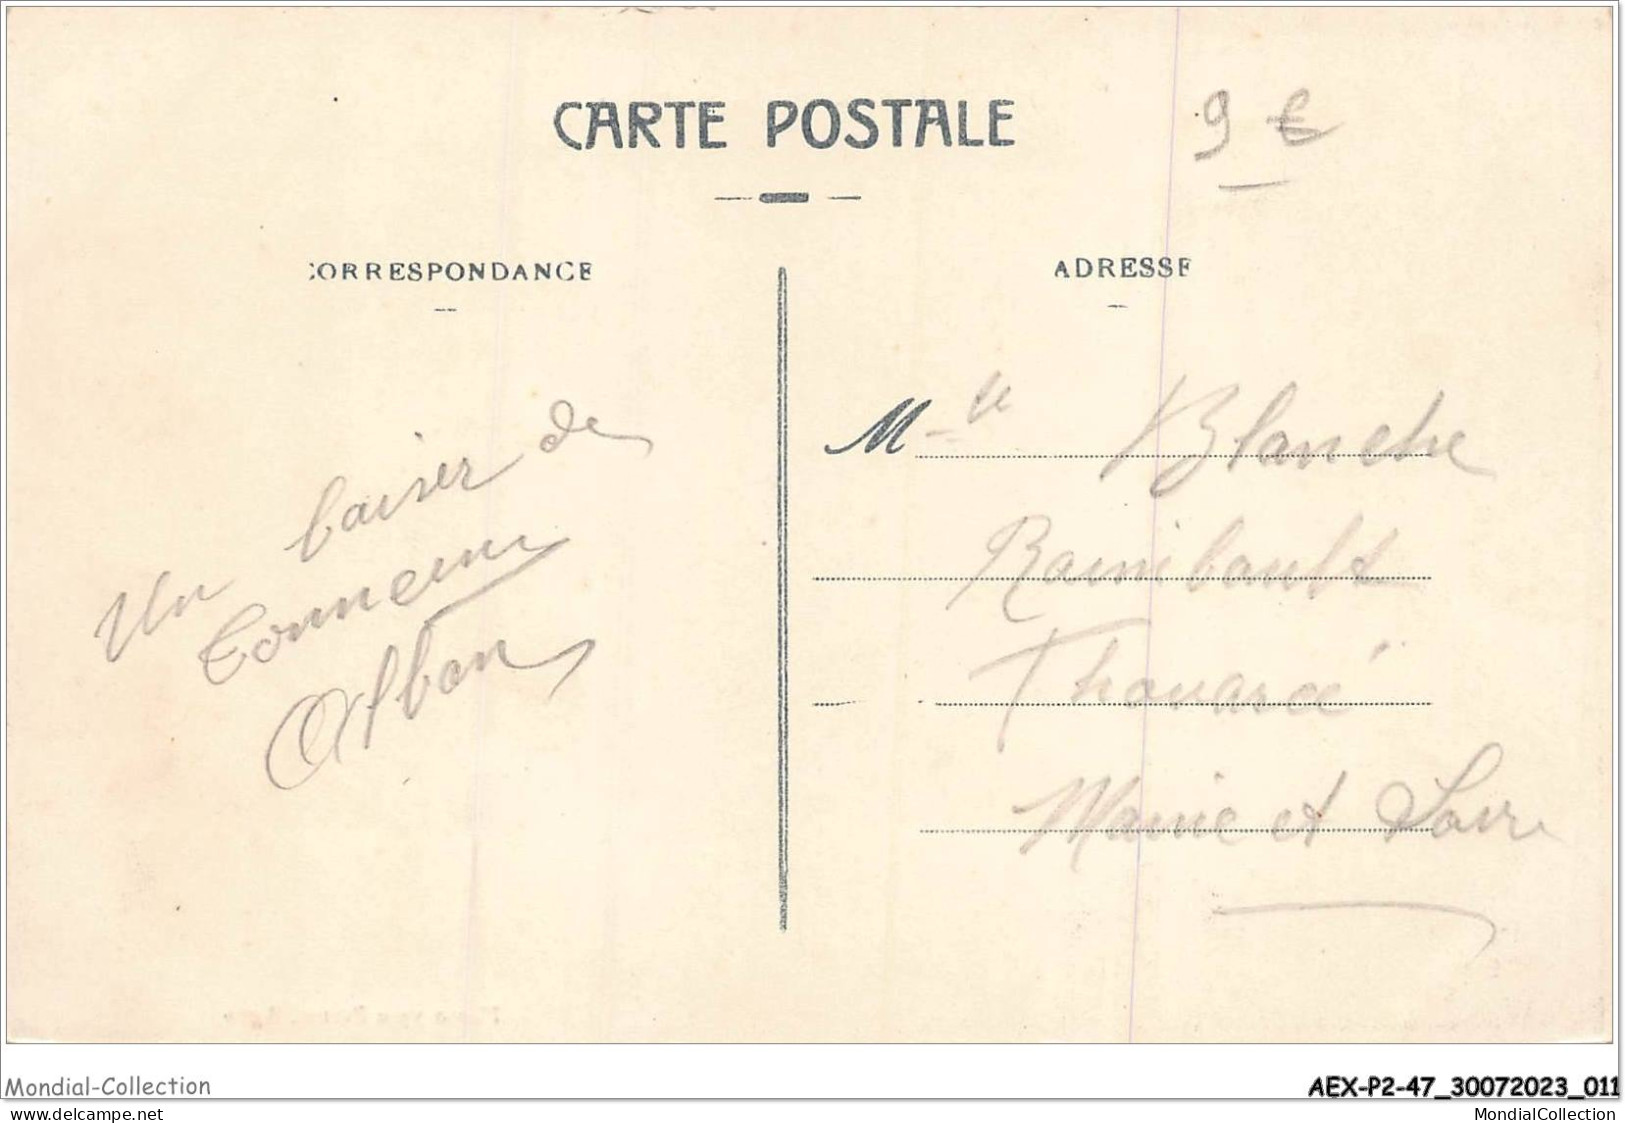 CARTE POSTALE
9 €
CORRESPONDANCE
ADRESSE
Un baiser de
Tonneins
Alban
Mlle Blanche
Raimbault
Thouarcé
Maine et Loire
Mondial-Collection
AEX-P2-47_30072023_011
delcampe.net
MondialCollection